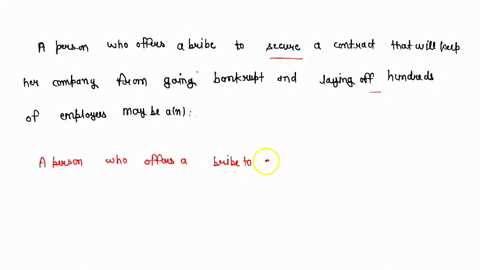 A person who offers a bribe to secure a contract that will keep
her company from going bankrupt and laying off hundreds
of employees may be a(n):
A person who offers a bribe to